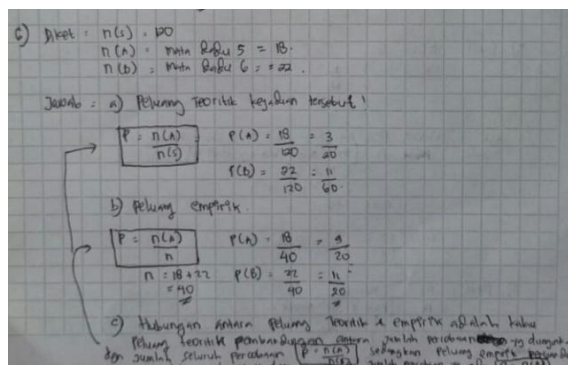 6) Diket = n(s) = 120
n(A) = mata dadu 5 = 18.
n(B) = mata dadu 6 = 22.
Jawab = a) Peluang teoritik kejadian tersebut!
P = n(A)/n(s) P(A) = 18/120 = 3/20
P(B) = 22/120 = 11/60.
b) Peluang empirik.
P = n(A)/n P(A) = 18/40 = 9/20
n = 18+22 P(B) = 22/40 = 11/20
= 40
c) Hubungan antara Peluang teoritik & empirik adalah kalau
Peluang teoritik perbandingan antara jumlah percobaan yg
dgn jumlah seluruh percobaan P = n(A)/n(s) sedangkan Peluang empirik